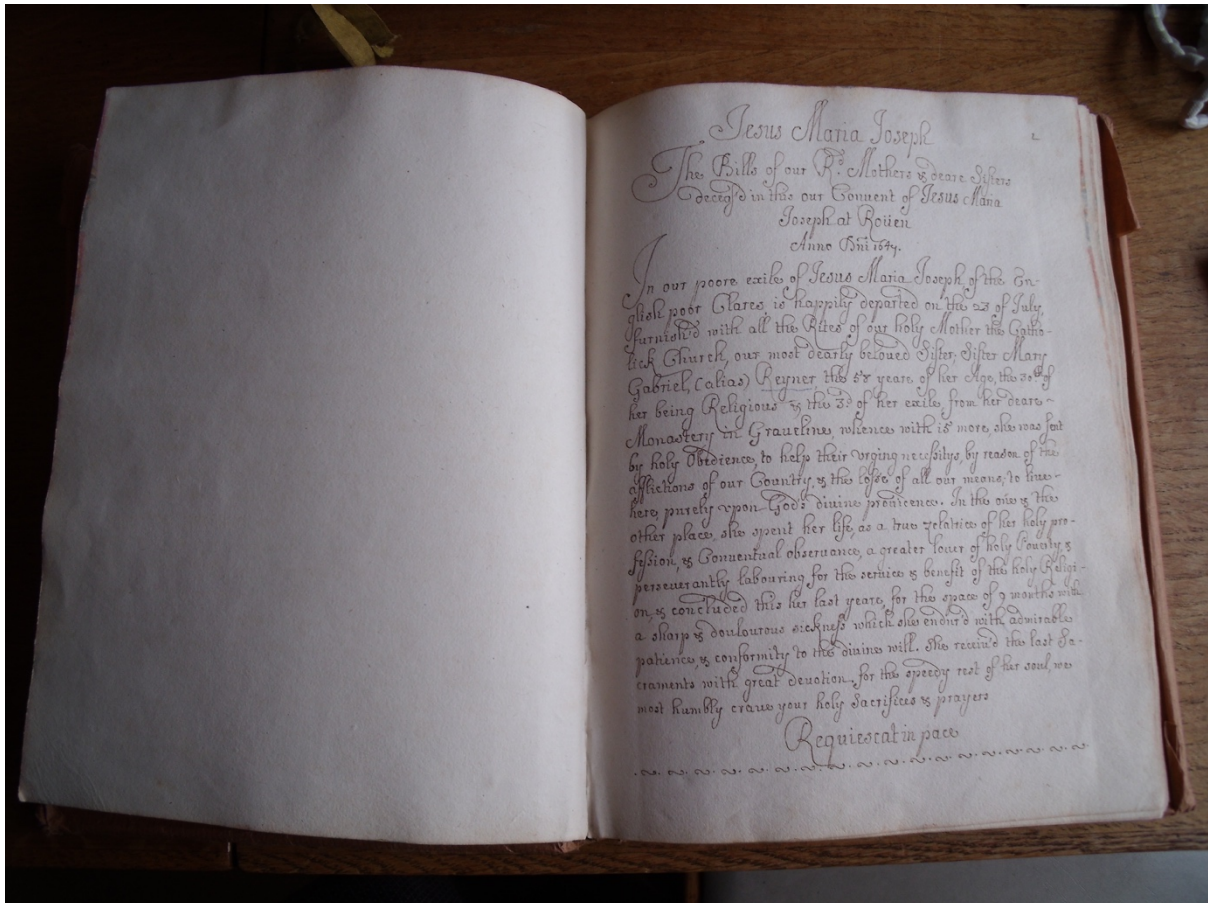 Jesus Maria Joseph
The Bills of our Rd. Mothers & deare Sisters
deceas'd in this our Convent of Jesus Maria
Joseph at Roüen
Anno Dni 1647.
In our poore exile of Jesus Maria Joseph of the En-
glish poor Clares, is happily departed on the 23 of July,
furnish'd with all the Rites of our holy Mother the Catho-
lick Church, our most dearly beloved Sister, Sister Mary
Gabriel, (alias) Reyner, the 58 years, of her Age, the 30th of
her being Religious & the 3d. of her exile, from her deare
Monastery in Graveline, whence with 15 more, she was sent
by holy Obedience, to help their vrging necessitys, by reason of the
afflictions of our Country, & the losse of all our means, to live
here, purely vpon Gods divine providence. In the one & the
other place, she spent her life, as a true zelatrice of her holy pro-
fession, & Conventual observance, a greater lover of holy Poverty &
perseverantly labouring for the service & benefit of the holy Religi-
on, & concluded this her last yeare, for the space of 9 months with
a sharp & doulourous sickness which she endur'd with admirable
patience, & conformity to the divine will. she receiu'd the last Sa-
craments with great devotion. for the speedy rest of her soul, we
most humbly crave your holy Sacrifices & prayers
Requiescat in pace